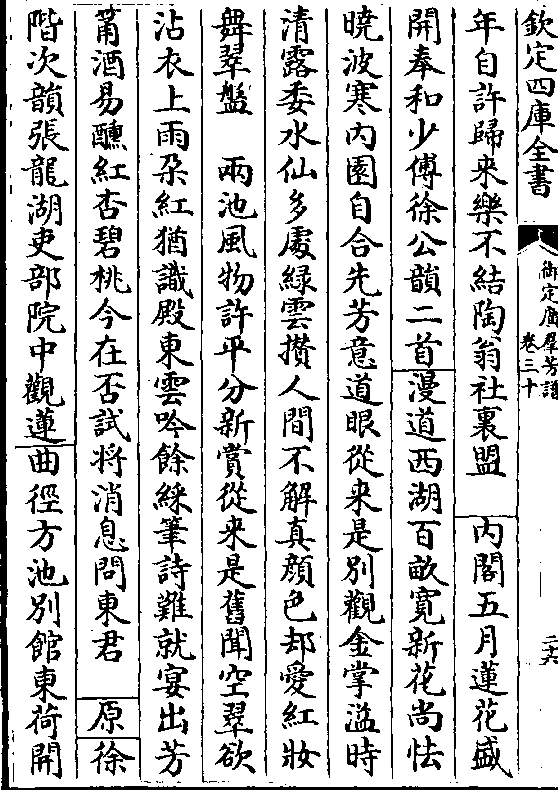 欽定四庫全書
御定廣羣芳譜
卷三十
二六
年自許歸來樂不結陶翁社裏盟　內閣五月蓮花盛
開奉和少傅徐公韻二首漫道西湖百畝寛新花尚怯
曉波寒內園自合先芳意道眼從来是別觀金掌溢時
清露委水仙多處緑雲攅人間不解真顔色却愛紅妝
舞翠盤　兩池風物許平分新賞從来是舊聞空翠欲
沾衣上雨朶紅猶識殿東雲吟餘綵筆詩難就宴出芳
莆酒易醺紅杏碧桃今在否試将消息問東君　原徐
階次韻張龍湖吏部院中觀蓮曲徑方池別館東荷開